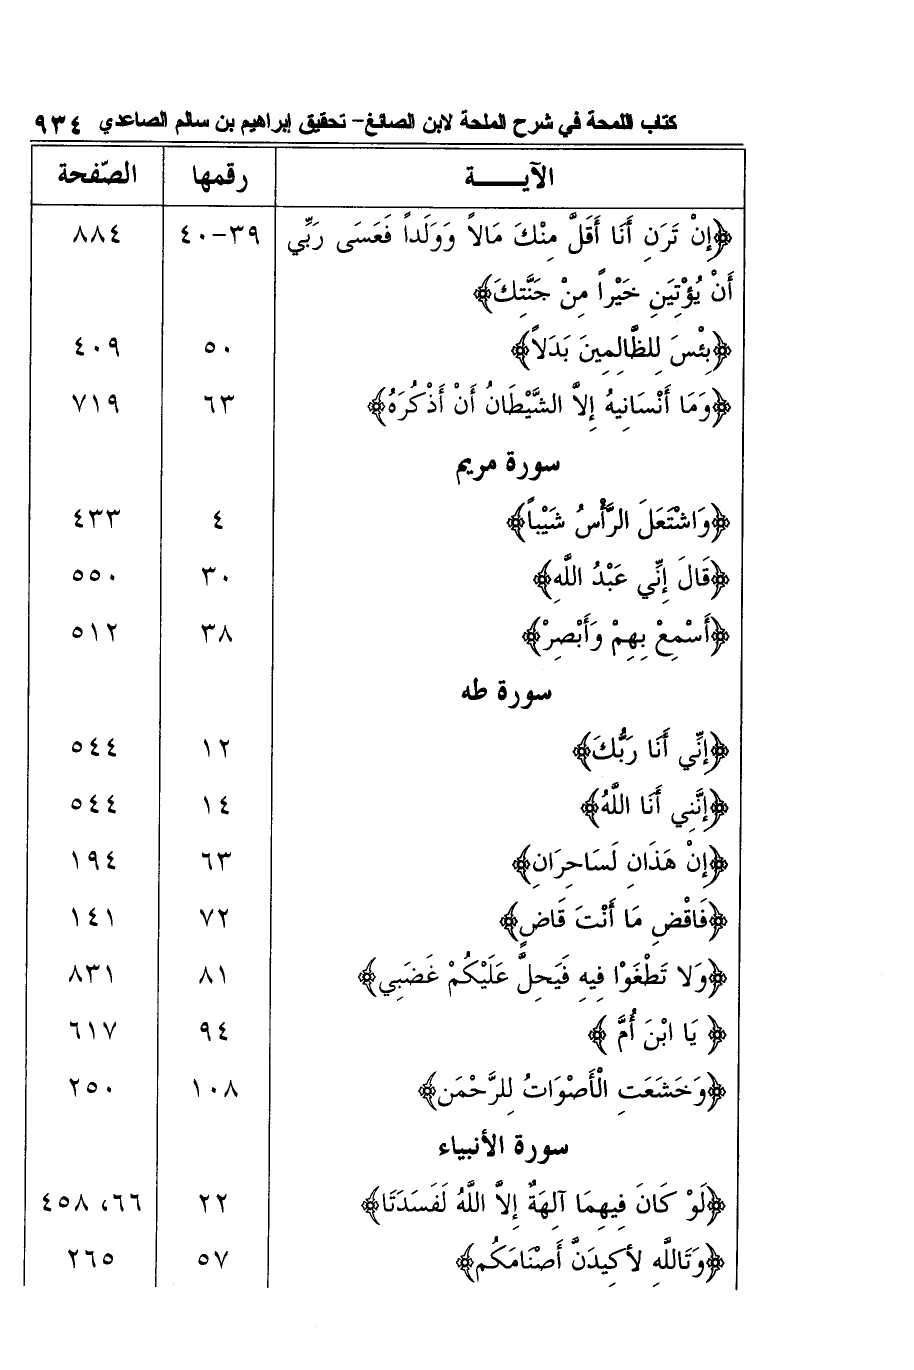 كتاب اللمحة في شرح الملحة لابن الصائغ- تحقيق إبراهيم بن سالم الصاعدي ٩٣٤
الآيــــة رقمها الصّفحة
﴿إِنْ تَرَنِ أَنَا أَقَلَّ مِنْكَ مَالاً وَوَلَداً فَعَسَى رَبِّي ٣٩-٤٠ ٨٨٤
أَنْ يُؤْتِيَنِ خَيْراً مِنْ جَنَّتِكَ﴾
﴿بِئْسَ لِلظَّالِمِينَ بَدَلاً﴾ ٥٠ ٤٠٩
﴿وَمَا أَنْسَانِيهُ إِلاَّ الشَّيْطَانُ أَنْ أَذْكُرَهُ﴾ ٦٣ ٧١٩
سورة مريم
﴿وَاشْتَعَلَ الرَّأْسُ شَيْباً﴾ ٤ ٤٣٣
﴿قَالَ إِنِّي عَبْدُ اللَّهِ﴾ ٣٠ ٥٥٠
﴿أَسْمِعْ بِهِمْ وَأَبْصِرْ﴾ ٣٨ ٥١٢
سورة طه
﴿إِنِّي أَنَا رَبُّكَ﴾ ١٢ ٥٤٤
﴿إِنَّنِي أَنَا اللَّهُ﴾ ١٤ ٥٤٤
﴿إِنْ هَذَانِ لَسَاحِرَانِ﴾ ٦٣ ١٩٤
﴿فَاقْضِ مَا أَنْتَ قَاضٍ﴾ ٧٢ ١٤١
﴿وَلا تَطْغَوْا فِيهِ فَيَحِلَّ عَلَيْكُمْ غَضَبِي﴾ ٨١ ٨٣١
﴿ يَا ابْنَ أُمَّ ﴾ ٩٤ ٦١٧
﴿وَخَشَعَتِ الْأَصْوَاتُ لِلرَّحْمَنِ﴾ ١٠٨ ٢٥٠
سورة الأنبياء
﴿لَوْ كَانَ فِيهِمَا آلِهَةٌ إِلاَّ اللَّهُ لَفَسَدَتَا﴾ ٢٢ ٦٦، ٤٥٨
﴿وَتَاللَّهِ لأَكِيدَنَّ أَصْنَامَكُم﴾ ٥٧ ٢٦٥